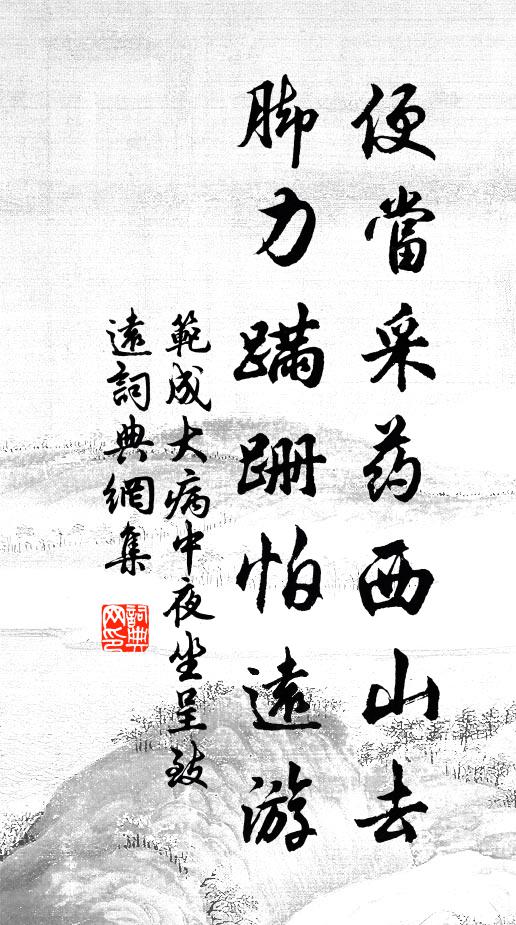 便當采药西山去
脚力蹣跚怕遠游
範成大病中夜坐呈致
遠詞典網集
詞典
网印